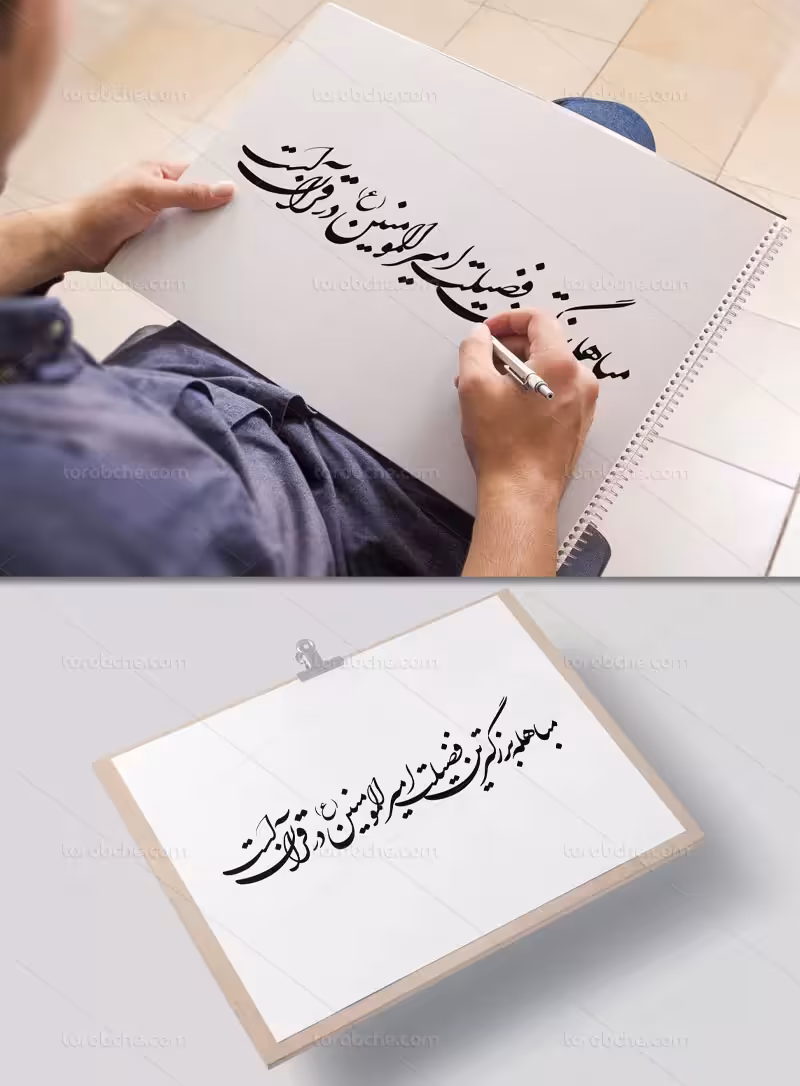 مباهله بزرگترین فضیلت امیرالمومنین (ع) در قرآن است
مباهله بزرگترین فضیلت امیرالمومنین (ع) در قرآن است
torobche.com